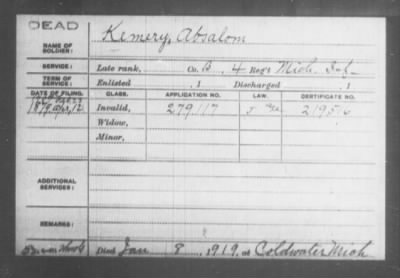 DEAD
NAME OF SOLDIER: Kemery, Absalom
SERVICE: Late rank, Co. B, 4 Reg't Mich. Inf.
TERM OF SERVICE: Enlisted , 1 Discharged , 1
DATE OF FILING. CLASS. APPLICATION NO. LAW. CERTIFICATE NO.
1879, Apr, 12 Invalid, 279,117
Widow,
Minor,
ADDITIONAL SERVICES:
REMARKS:
Died Jan 8, 1919, at Coldwater Mich